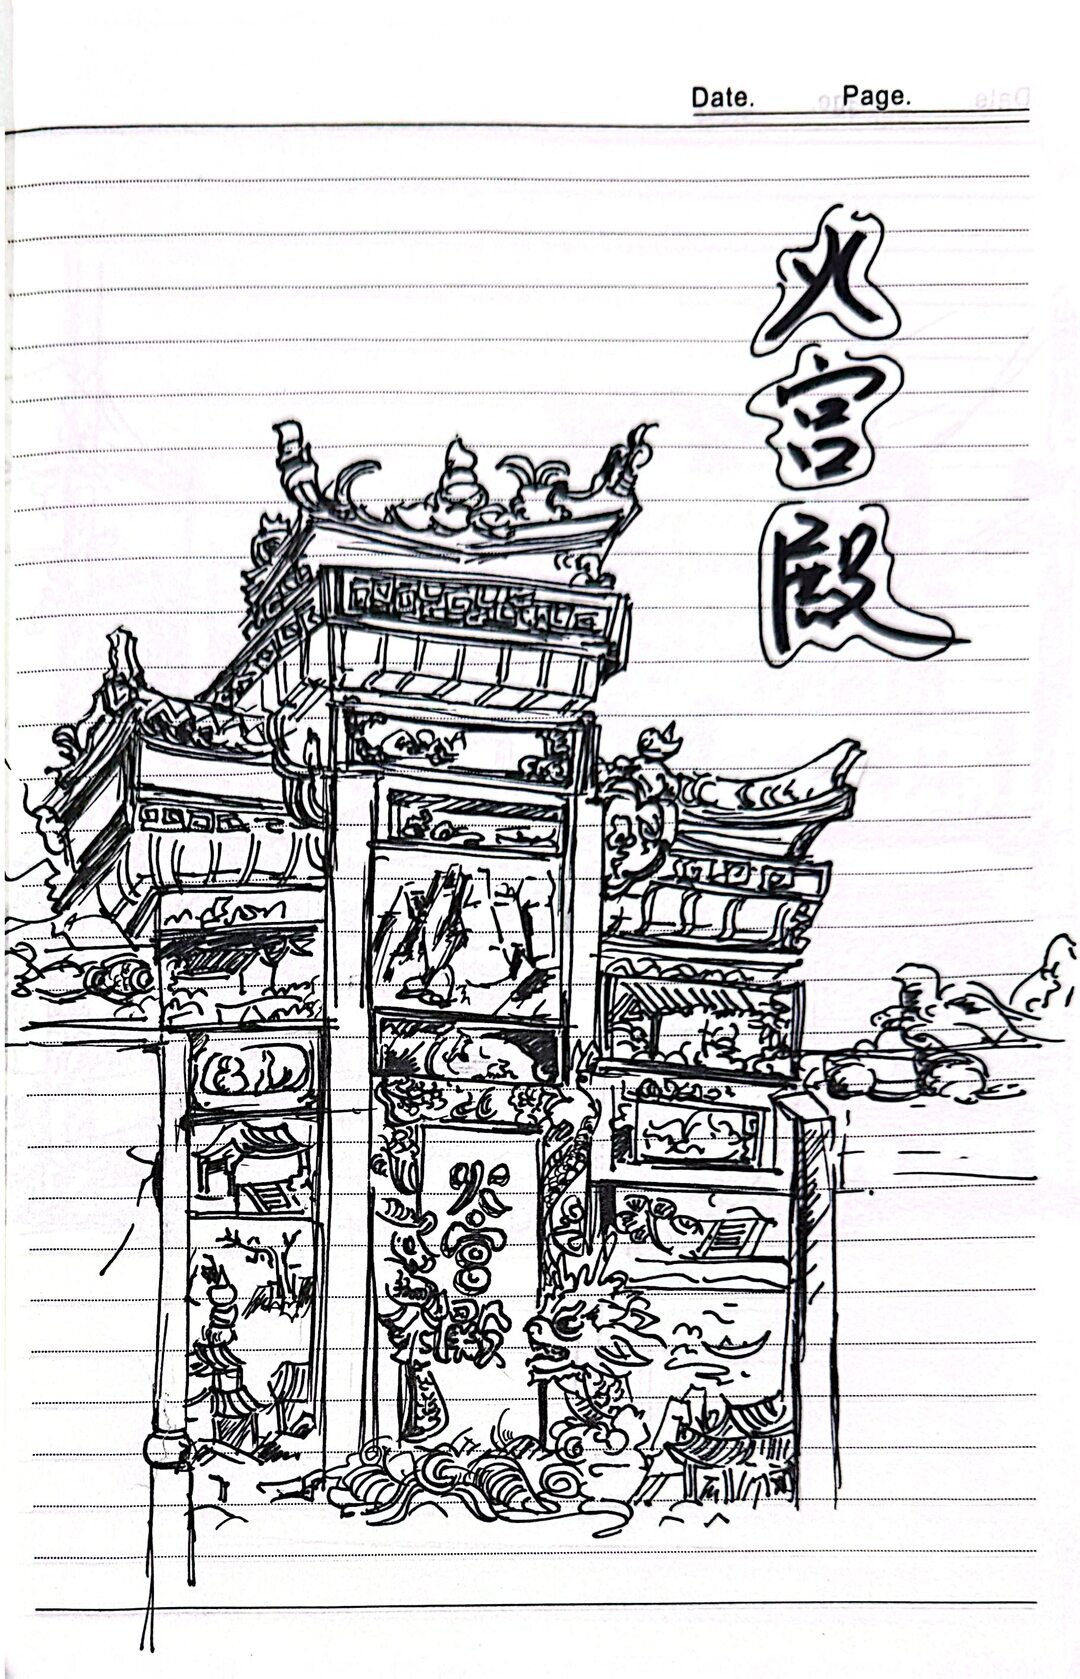 Date. Page.
火
宫
殿
火
宫
殿